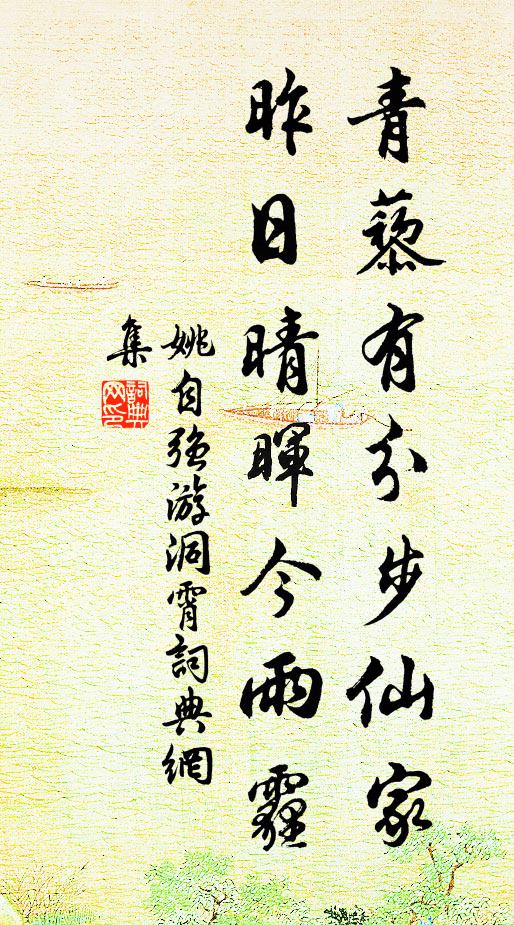 青藜有分步仙家
昨日晴暉今雨霾
姚自强游洞霄詞典網
集
詞典网印